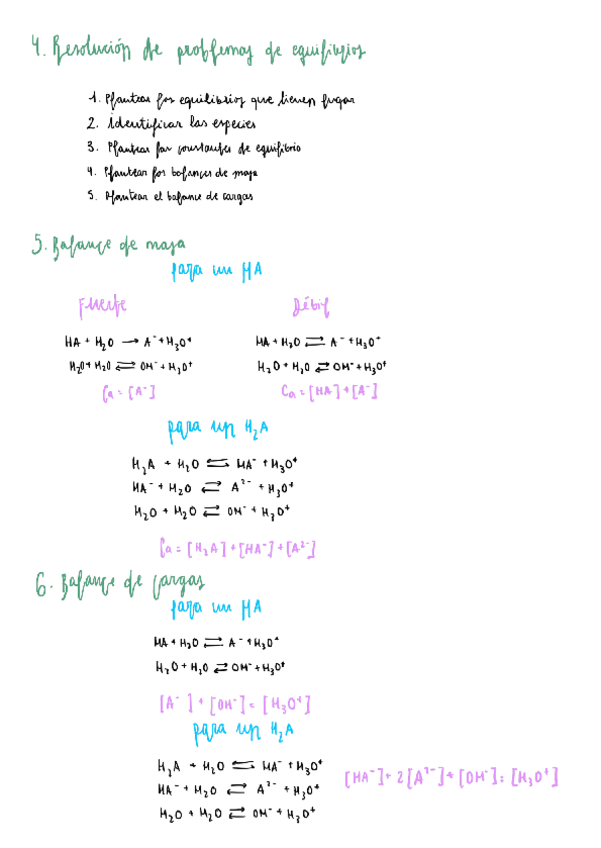 4. Resolución de problemas de equilibrios
1. Plantear los equilibrios que tienen lugar
2. identificar las especies
3. Plantear las constantes de equilibrio
4. Plantear los balances de masa
5. Plantear el balance de cargas
5. Balance de masa
para un HA
Fuerte Débil
HA + H₂O → A⁻ + H₃O⁺ HA + H₂O ⇌ A⁻ + H₃O⁺
H₂O + H₂O ⇌ OH⁻ + H₃O⁺ H₂O + H₂O ⇌ OH⁻ + H₃O⁺
Ca = [A⁻] Ca = [HA] + [A⁻]
para un H₂A
H₂A + H₂O ⇌ HA⁻ + H₃O⁺
HA⁻ + H₂O ⇌ A²⁻ + H₃O⁺
H₂O + H₂O ⇌ OH⁻ + H₃O⁺
Ca = [H₂A] + [HA⁻] + [A²⁻]
6. Balance de cargas
para un HA
HA + H₂O ⇌ A⁻ + H₃O⁺
H₂O + H₂O ⇌ OH⁻ + H₃O⁺
[A⁻] + [OH⁻] = [H₃O⁺]
para un H₂A
H₂A + H₂O ⇌ HA⁻ + H₃O⁺
HA⁻ + H₂O ⇌ A²⁻ + H₃O⁺ [HA⁻] + 2[A²⁻] + [OH⁻] = [H₃O⁺]
H₂O + H₂O ⇌ OH⁻ + H₃O⁺